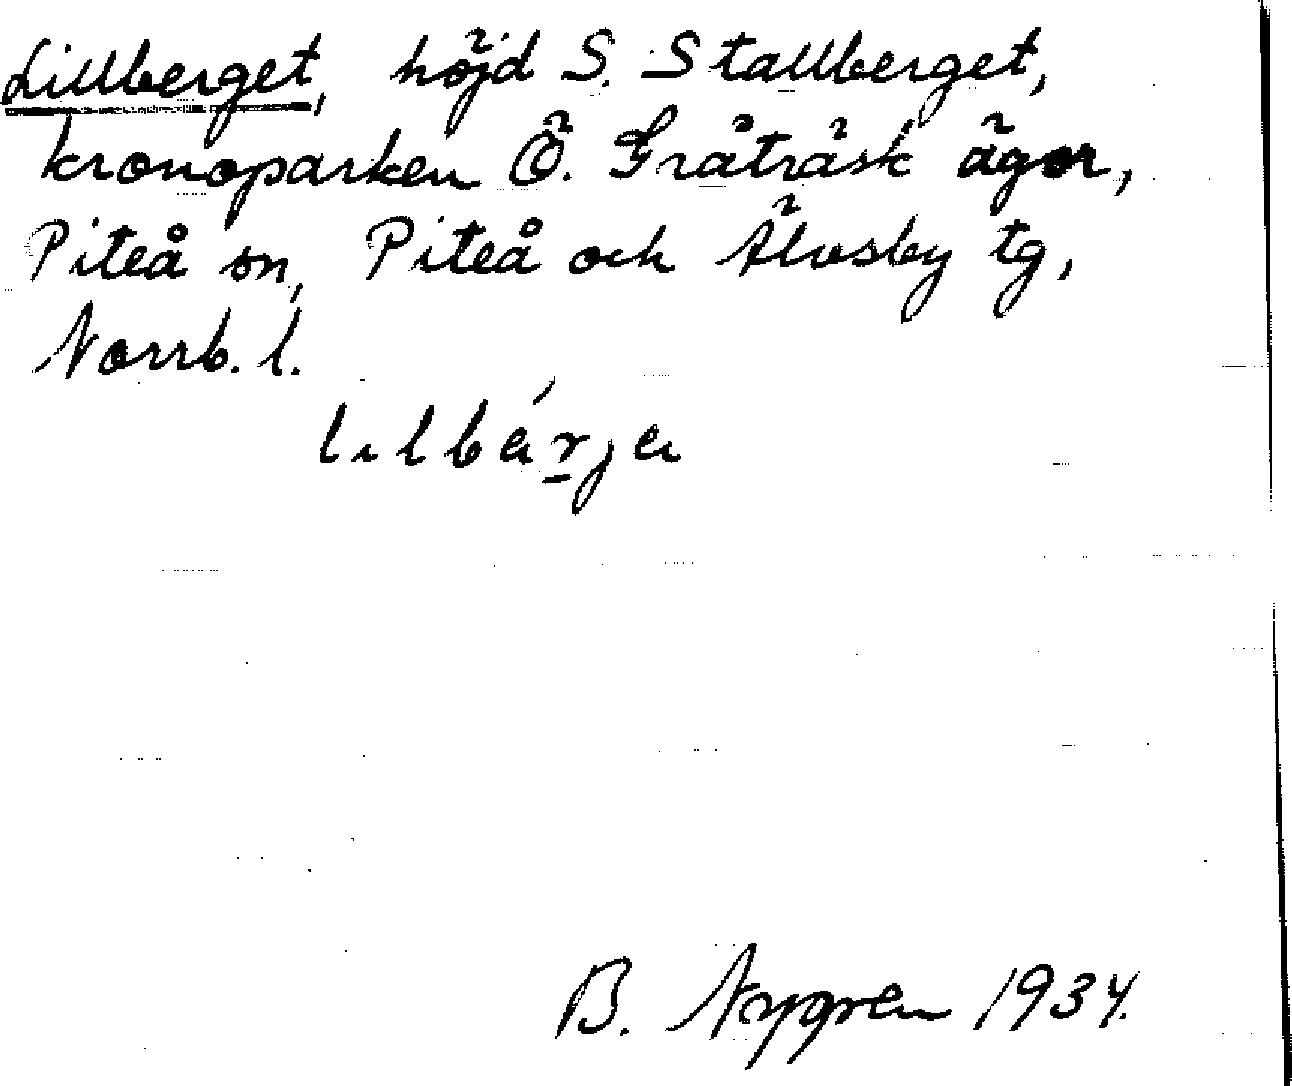 Lillberget, höjd S. Stallberget,
kronoparken Ö. Gråträsk ägor,
Piteå sn, Piteå och Älvsby tg,
Norrb. l.
lılbárja
B. Nygren 1934.